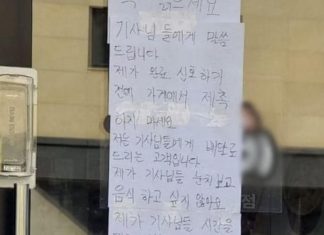 꼭 읽으세요
기사님들에게 말씀
드립니다
제가 완료 신호하기
전에 가게에서 재촉
하지 마세요
저는 기사님들에게 배달료
드리는 고객입니다
제가 기사님들 눈치보고
음식 하고 싶지 않아요
제가 기사님들 시간을
점